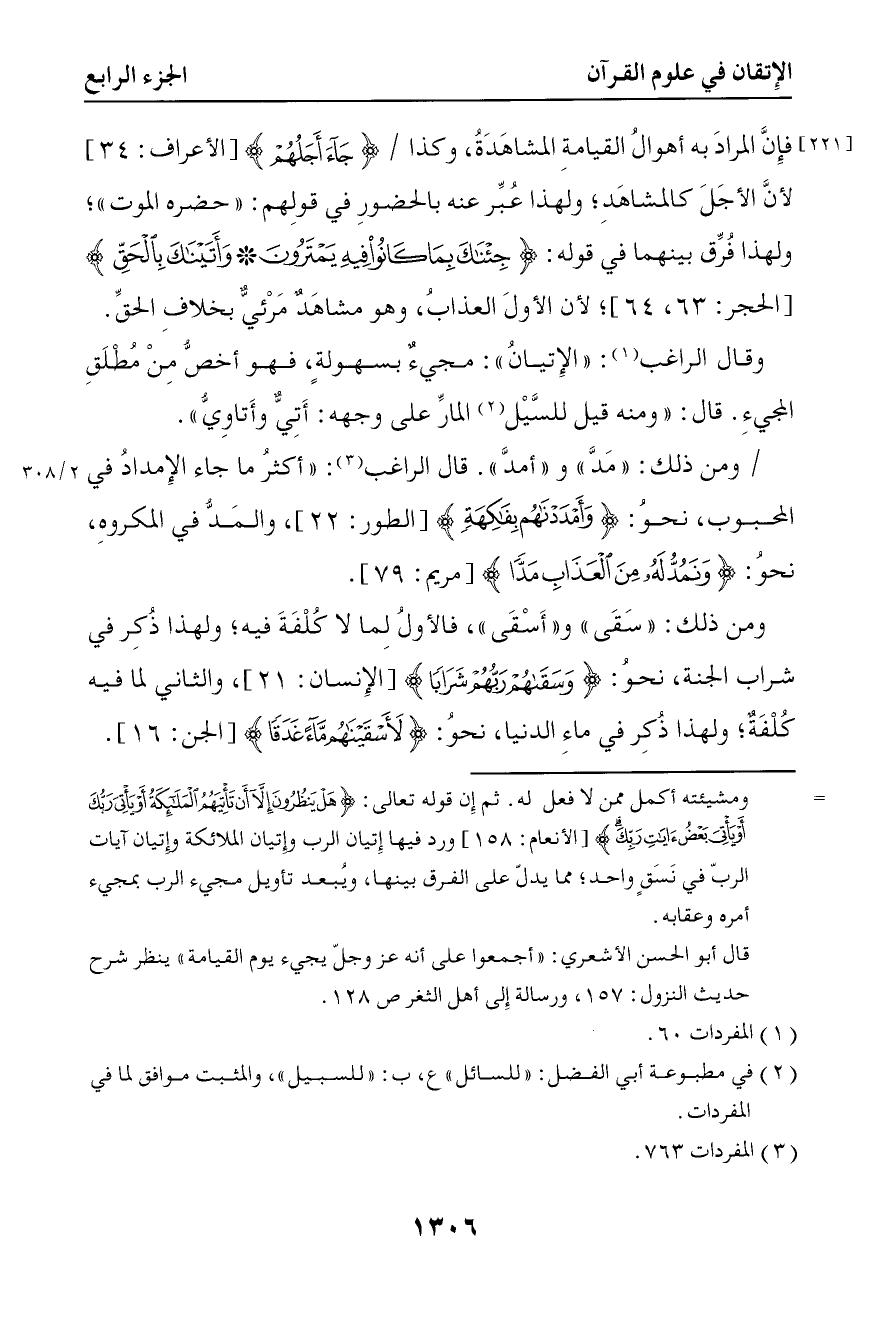 الإتقان في علوم القرآن الجزء الرابع
[٢٢١] فإنَّ المرادَ به أهوالُ القيامةِ المشاهَدَةُ، وكذا / ﴿ جَآءَ أَجَلُهُمْ ﴾ [الأعراف: ٣٤]
لأنَّ الأجَلَ كالمشاهَد؛ ولهذا عُبِّر عنه بالحضورِ في قولهم: «حضره الموت»؛
ولهذا فُرِّق بينهما في قوله: ﴿ جِئْنَٰكَ بِمَا كَانُوا۟ فِيهِ يَمْتَرُونَ * وَأَتَيْنَٰكَ بِٱلْحَقِّ ﴾
[الحجر: ٦٣، ٦٤]؛ لأن الأولَ العذابُ، وهو مشاهَدٌ مَرْئيٌّ بخلافِ الحقِّ.
وقال الراغب(١): «الإتيانُ»: مجيءٌ بسهولةٍ، فهو أخصُّ مِنْ مُطْلَقِ
المجيءِ. قال: «ومنه قيل للسَّيْل(٢) المارِّ على وجهه: أَتِيٌّ وأَتاوِيٌّ».
/ ومن ذلك: «مَدَّ» و «أمدَّ». قال الراغب(٣): «أكثرُ ما جاء الإمدادُ في ٣٠٨/٢
المحبوب، نحوُ: ﴿ وَأَمْدَدْنَٰهُم بِفَٰكِهَةٍ ﴾ [الطور: ٢٢]، والمَدُّ في المكروهِ،
نحوُ: ﴿ وَنَمُدُّ لَهُۥ مِنَ ٱلْعَذَابِ مَدًّا ﴾ [مريم: ٧٩].
ومن ذلك: «سَقَى» و«أَسْقَى»، فالأولُ لِما لا كُلْفَةَ فيه؛ ولهذا ذُكِر في
شراب الجنة، نحوُ: ﴿ وَسَقَىٰهُمْ رَبُّهُمْ شَرَابًا ﴾ [الإنسان: ٢١]، والثاني لما فيه
كُلْفَةٌ؛ ولهذا ذُكِر في ماءِ الدنيا، نحوُ: ﴿ لَأَسْقَيْنَٰهُم مَّآءً غَدَقًا ﴾ [الجن: ١٦].
= ومشيئته أكمل ممن لا فعل له. ثم إن قوله تعالى: ﴿ هَلْ يَنظُرُونَ إِلَّآ أَن تَأْتِيَهُمُ ٱلْمَلَٰٓئِكَةُ أَوْ يَأْتِىَ رَبُّكَ
أَوْ يَأْتِىَ بَعْضُ ءَايَٰتِ رَبِّكَ ﴾ [الأنعام: ١٥٨] ورد فيها إتيان الرب وإتيان الملائكة وإتيان آيات
الربّ في نَسَقٍ واحد؛ مما يدلّ على الفرق بينها، ويُبعد تأويل مجيء الرب بمجيء
أمره وعقابه.
قال أبو الحسن الأشعري: «أجمعوا على أنه عز وجلّ يجيء يوم القيامة» ينظر شرح
حديث النزول: ١٥٧، ورسالة إلى أهل الثغر ص ١٢٨.
(١) المفردات ٦٠.
(٢) في مطبوعة أبي الفضل: «للسائل» ع، ب: «للسبيل»، والمثبت موافق لما في
المفردات.
(٣) المفردات ٧٦٣.
١٣٠٦